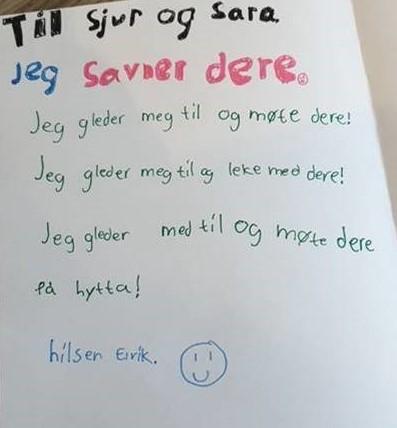 Till Sjur og Sara.
Jeg Savner dere.
Jeg gleder meg til og møte dere!
Jeg gleder meg til og leke med dere!
Jeg gleder med til og møte dere
på hytta!
hilsen Eirik.